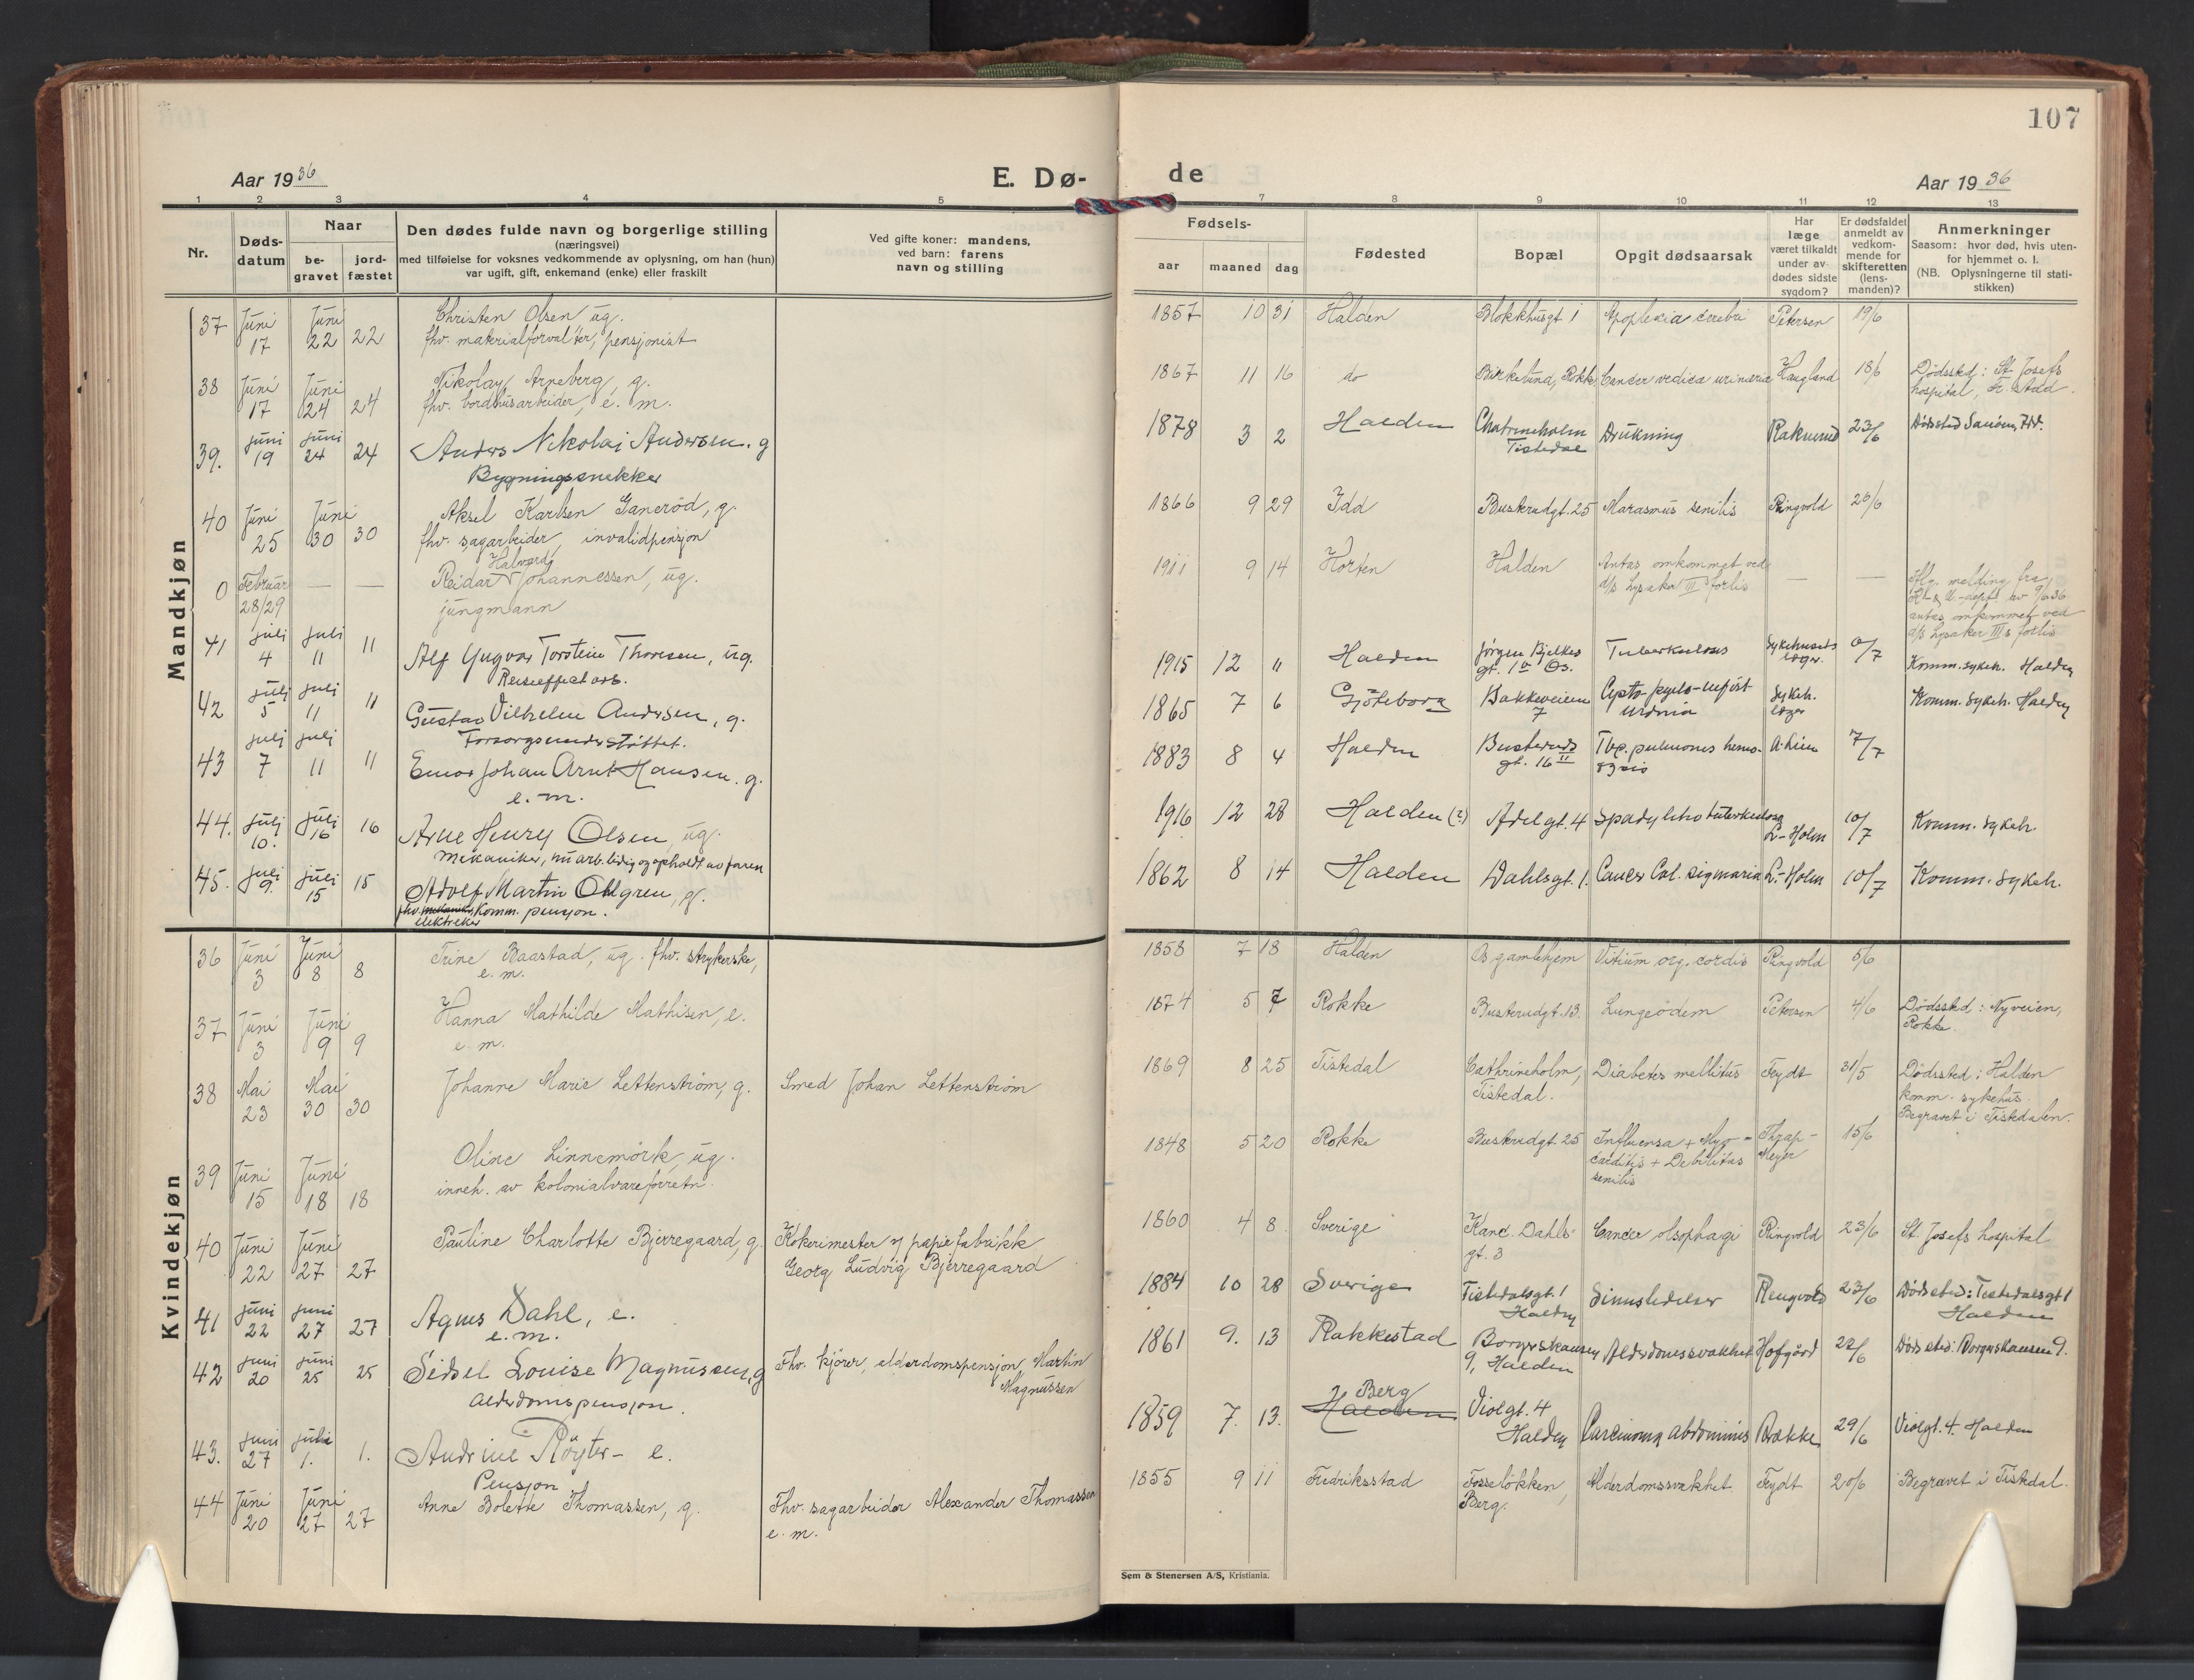 107
Aar 1936
E. Dø-
de
Aar 1936
1 2 3 4 5 7 8 9 10 11 12 13
Nr.
Døds-
datum
Naar
be-
gravet
jord-
fæstet
Den dødes fulde navn og borgerlige stilling
(næringsvei)
med tilføielse for voksnes vedkommende av oplysning, om han (hun)
var ugift, gift, enkemand (enke) eller fraskilt
Ved gifte koner: mandens,
ved barn: farens
navn og stilling
Fødsels-
aar maaned dag
Fødested
Bopæl
Opgit dødsaarsak
Har
læge
været tilkaldt
under av-
dødes sidste
sygdom?
Er dødsfaldet
anmeldt av
vedkom-
mende for
skifteretten
(lens-
manden)?
Anmerkninger
Saasom: hvor død, hvis uten-
for hjemmet o. l.
(NB. Oplysningerne til stati-
stikken)
Mandkjøn
37 Juni 17 Juni 22 22 Christen Olsen ug. 1857 10 31 Halden Blokkhusgt 1 Apoplexia cerebri Petersen 19/6
fhv. materialforvalter, pensjonist
38 Juni 17 Juni 24 24 Nikolay Arneberg, g. 1867 11 16 do Birkelund, Rokke Cancer vedica urinaria Haugland 18/6 Dødssted: St. Josefs
fhv. bordhusarbeider, e. m. hospital, Fr. stad.
39. Juni 19 Juni 24 24 Anders Nikolai Andersen. g 1878 3 2 Halden Chatrineholm Drukning Rakerud 23/6
Bygningssnekker Tistedal
40 Juni 25 Juni 30 30 Aksel Karlsen Ganerød, g. 1866 9 29 Idd Buskrudgt. 25 Marasmus senilis Ringvold 26/6
fhv. sagarbeider, invalidpensjon
0 Februar 28/29 — — Reidar Halvard Johannessen, ug. 1911 9 14 Horten Halden Antas omkommet ved — — Iflg. melding fra
jungmann d/s Lysaker III forlis
antas omkommet ved
d/s Lysaker IIIs forlis
41 Juli 4 Juli 11 11 Alf Yngvar Torstein Thoresen, ug. 1915 12 11 Halden Jørgen Bjelkes Tuberkulose Sykehusets 6/7 Komm. sykeh. Halden
Reiseeffektarb. gt. 1 læger.
42 Juli 5 Juli 11 11 Gustav Vilhelm Andersen, g. 1865 7 6 Gjöteborg Bakkeveien Sykeh. Komm. sykeh. Halden
Forsorgsunderstøttet. 7 læger
43 Juli 7 Juli 11 11 Einar Johan Arnt Hansen. g. 1883 8 4 Halden Busterud Tbp. pulmones 7/7
e. m. gt. 16 II
44. Juli 10. Juli 16 16 Arne Henry Olsen, ug. 1916 12 28 Halden (?) Adelgt. 4 L. Holm 10/7 Komm. sykeh.
mekaniker, nu arb. ledig og opholdt av faren
45. Juli 9. Juli 15 15 Adolf Martin Ohlgren, g. 1862 8 14 Halden Dahlsgt. 1. Cancer Col. sigmaria L. Holm 10/7 Komm. sykeh.
fhv. mekaniker Komm. pensjon.
elektriker
Kvindekjøn
36 Juni 3 Juni 8 8 Trine Baastad, ug. fhv. strykerske, 1858 7 18 Halden Os gamlehjem Vitium org. cordis Ringvold 5/6
e. m.
37 Juni 3 Juni 9 9 Hanna Mathilde Mathisen, e. 1874 5 7 Rokke Busterudgt. 13. Lungeödem Petersen 4/6 Dødssted: Nyveien,
e. m. Rokke.
38 Mai 23 Mai 30 30 Johanne Marie Lettenstrøm, g. Smed Johan Lettenstrøm 1869 8 25 Tistedal Cathrineholm, Diabetes mellitus Frydt 31/5 Dødssted: Halden
Tistedal. komm. sykehus.
Begravet i Tistedalen.
39 Juni 15 Juni 18 18 Oline Linnemørk, ug. 1848 5 20 Rokke Buskrudgt. 25 Influensa + Myo- Thrap- 15/6
inneh. av kolonialvareforretn. carditis + Debilitas Meyer
senilis
40 Juni 22 Juni 27 27 Pauline Charlotte Bjerregaard, g. Kokerimester v papirfabrikk 1860 4 8 Sverige Kanc. Dahls- Cancer olsophagi Ringvold 23/6 St. Josefs hospital
Georg Ludvig Bjerregaard gt. 3
41 Juni 22 Juni 27 27 Agnes Dahl, e. 1884 10 28 Sverige Tistedalsgt. 1 Sinuslidelser Rengvold 23/6 Dødssted: Tistedalsgt 1
e. m. Halden Halden
42 Juni 20 Juni 25 25 Seidsel Louise Magnussen, g Fhv. kjører, alderdomspensjon, Martin 1861 9. 13 Rakkestad Borgerskansen Alderdomssvakhet Hofgård 22/6 Dødssted: Borgerskansen 9.
Alderdomspensjon. Magnussen 9, Halden
43. Juni 27 Juli 1. 1. Andrine Röyter - e. 1859 7. 13. Berg Halden Violgt. 4 Carcinoma abdominis Brække 29/6 Violgt. 4. Halden
Pensjon Halden
44 Juni 20 Juni 27 27 Anne Bolette Thomassen, g. Fhv. sagarbeider Alexander Thomassen 1855 9 11 Fredriksstad Fosseløkken, Alderdomssvakhet Frydt 20/6 Begravet i Tistedal.
e. m. Berg.
Sem & Stenersen A/S, Kristiania.